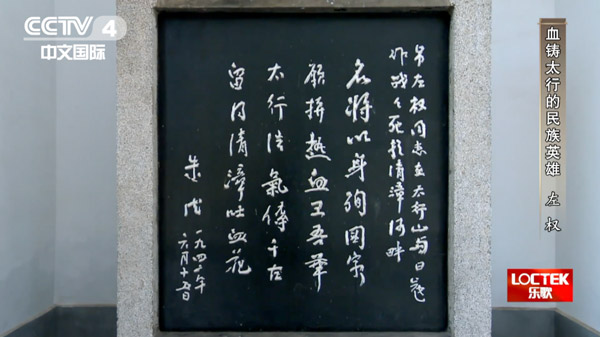 CCTV 4
中文国际
血铸太行的民族英雄 左权
LOCTEK
乐歌
吊左权同志在太行山与日寇
作战々死於清漳河畔
名将以身殉国家
願拼熱血卫吾華
太行浩氣傳千古
留得清漳吐血花
朱德
一九四二年
六月十五日